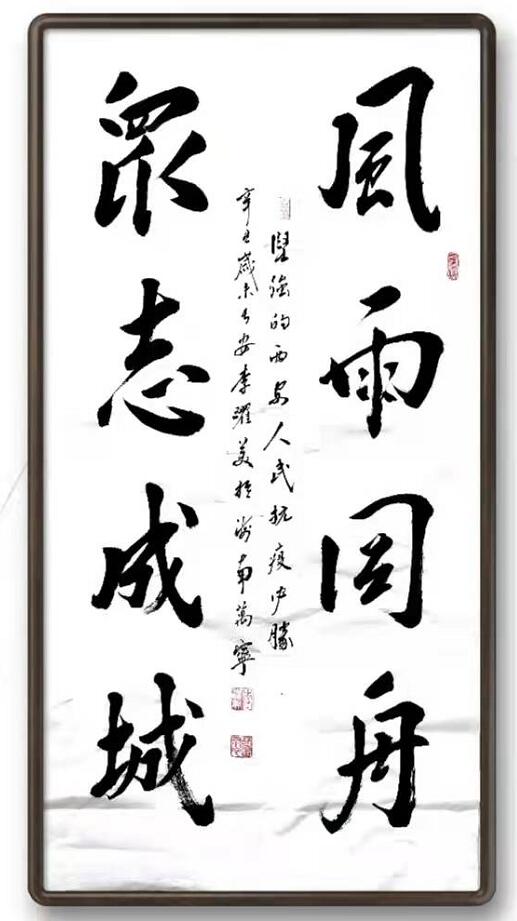 風雨同舟
眾志成城
堅強的西安人民抗疫必勝
辛丑歲末長安李耀美於海南萬寧